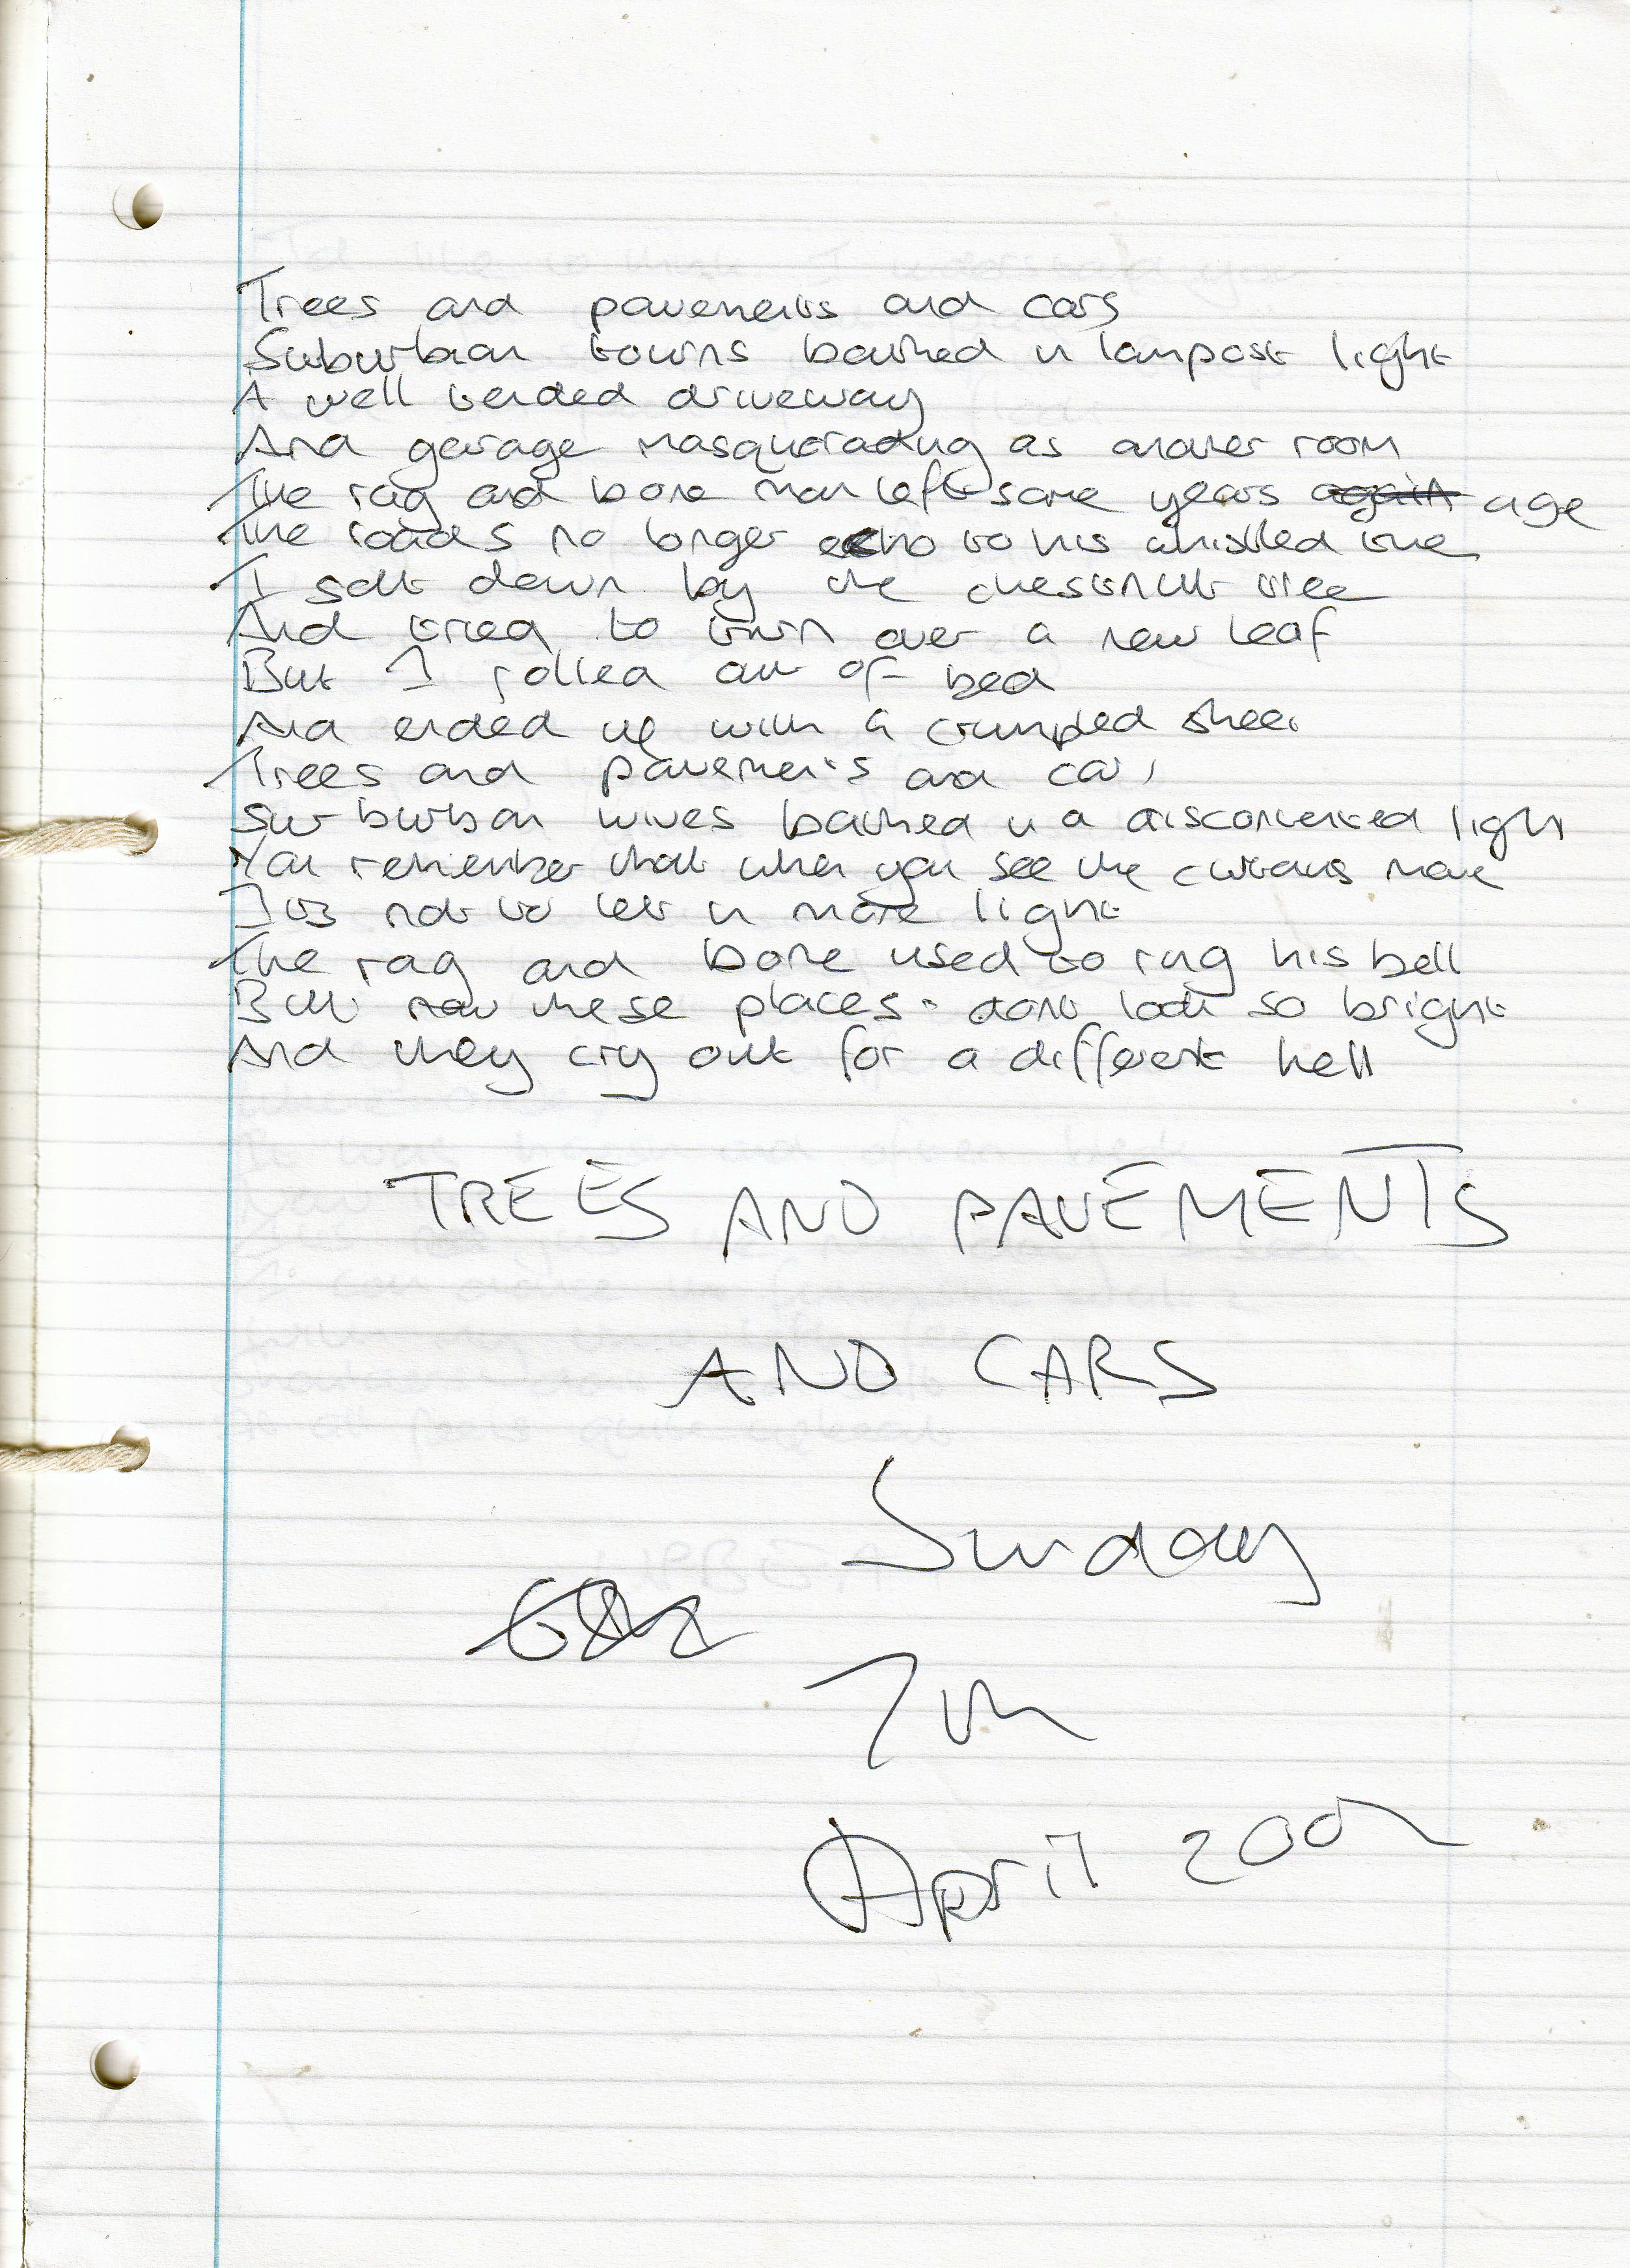 Trees and pavements and cars
Suburban towns bathed in lampost light
A well tended driveway
And garage masquerading as another room
The rag and bone man left some years again age
The roads no longer echo to his whistled tune
I sat down by the chestnut tree
And tried to turn over a new leaf
But I rolled out of bed
And ended up with a crumpled sheet
Trees and pavements and cars
Surburban wives bathed in a disconnected light
You remember that when you see the curtains move
Its not to let in more light
The rag and bone used to ring his bell
But now these places dont look so bright
And they cry out for a different hell
TREES AND PAVEMENTS
AND CARS
Sunday
7th
April 2002